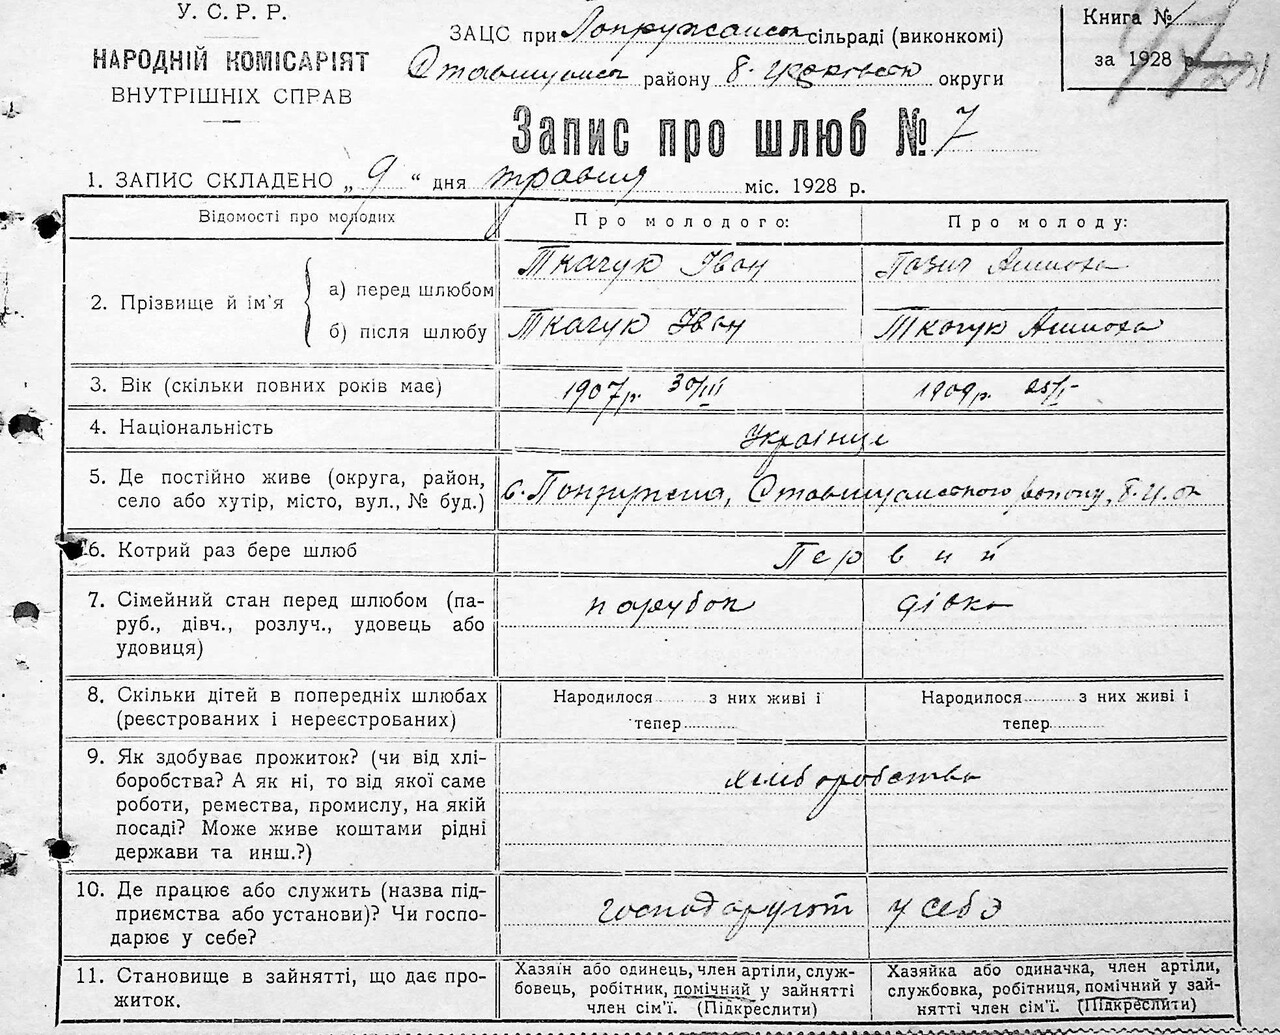 У. С. Р. Р.
НАРОДНІЙ КОМІСАРІЯТ
ВНУТРІШНІХ СПРАВ
ЗАЦС при сільраді (виконкомі)
району Б. Церковськ округи
Книга №
за 1928 р.
Запис про шлюб № 7
1. ЗАПИС СКЛАДЕНО „ 9 “ дня травня міс. 1928 р.
Відомості про молодих
Про молодого:
Про молоду:
2. Прізвище й ім'я
а) перед шлюбом
Ткачук Іван
б) після шлюбу
Ткачук Іван
Ткачук
3. Вік (скільки повних років має)
1907 р. 30/III
1909 р.
4. Національність
Українці
5. Де постійно живе (округа, район,
село або хутір, місто, вул., № буд.)
с. району, Б. Ц. ок
6. Котрий раз бере шлюб
Первий
7. Сімейний стан перед шлюбом (па-
руб., дівч., розлуч., удовець або
удовиця)
парубок
дівка
8. Скільки дітей в попередніх шлюбах
(реєстрованих і нереєстрованих)
Народилося з них живі і
тепер
Народилося з них живі і
тепер
9. Як здобуває прожиток? (чи від хлі-
боробства? А як ні, то від якої саме
роботи, ремества, промислу, на якій
посаді? Може живе коштами рідні
держави та инш.?)
хліборобства
10. Де працює або служить (назва під-
приємства або установи)? Чи госпо-
дарює у себе?
у себе
11. Становище в зайнятті, що дає про-
житок.
Хазяїн або одинець, член артіли, служ-
бовець, робітник, помічний у зайнятті
член сім'ї. (Підкреслити)
Хазяйка або одиначка, член артіли,
службовка, робітниця, помічний у зай-
нятті член сім'ї. (Підкреслити)